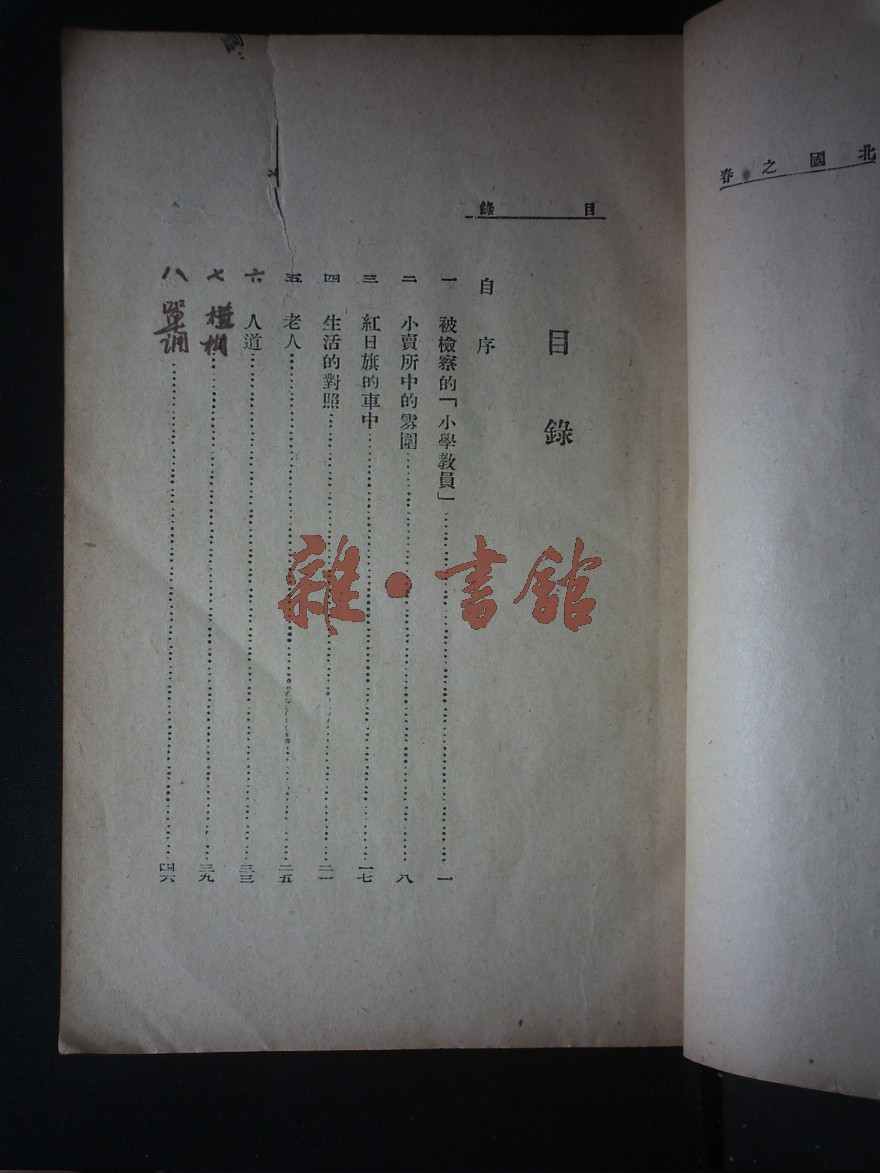 北國之春
目錄
目錄
自序
一 被檢察的「小學教員」 一
二 小賣所中的雰圍 八
三 紅日旗的車中 一七
四 生活的對照 二一
五 老人 二五
六 人道 三三
七 三九
八 單調 四六
雜·書館